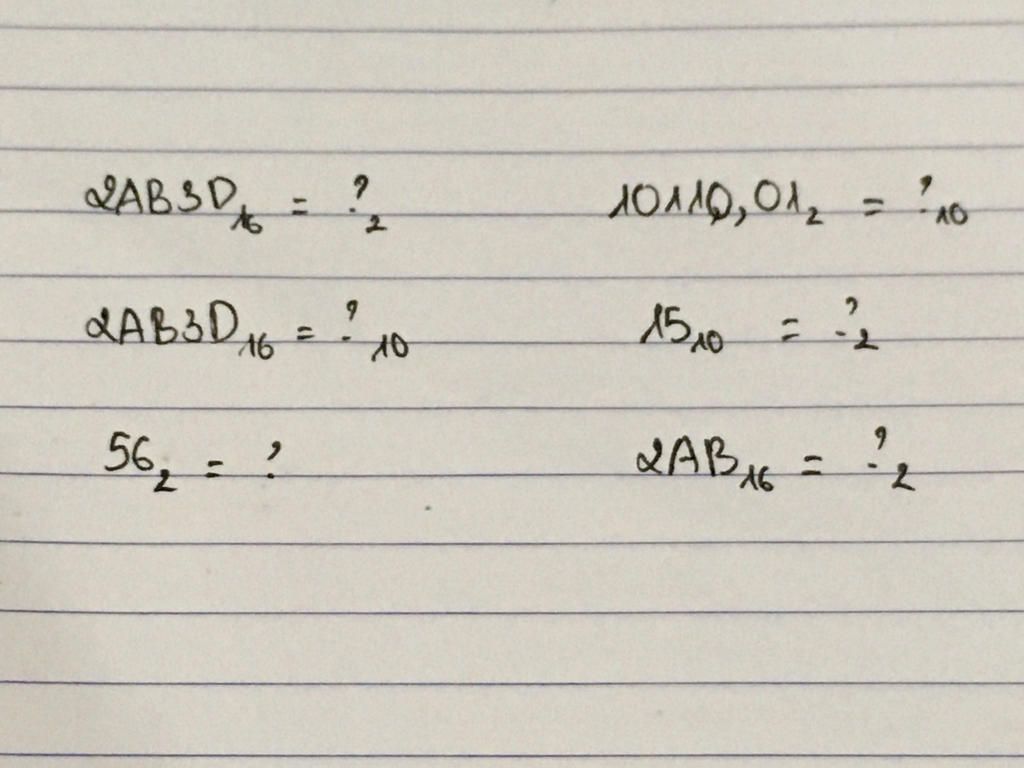 2AB3D₁₆ = ?₂
10110,01₂ = ?₁₀
2AB3D₁₆ = ?₁₀
15₁₀ = ?₂
56₂ = ?
2AB₁₆ = ?₂